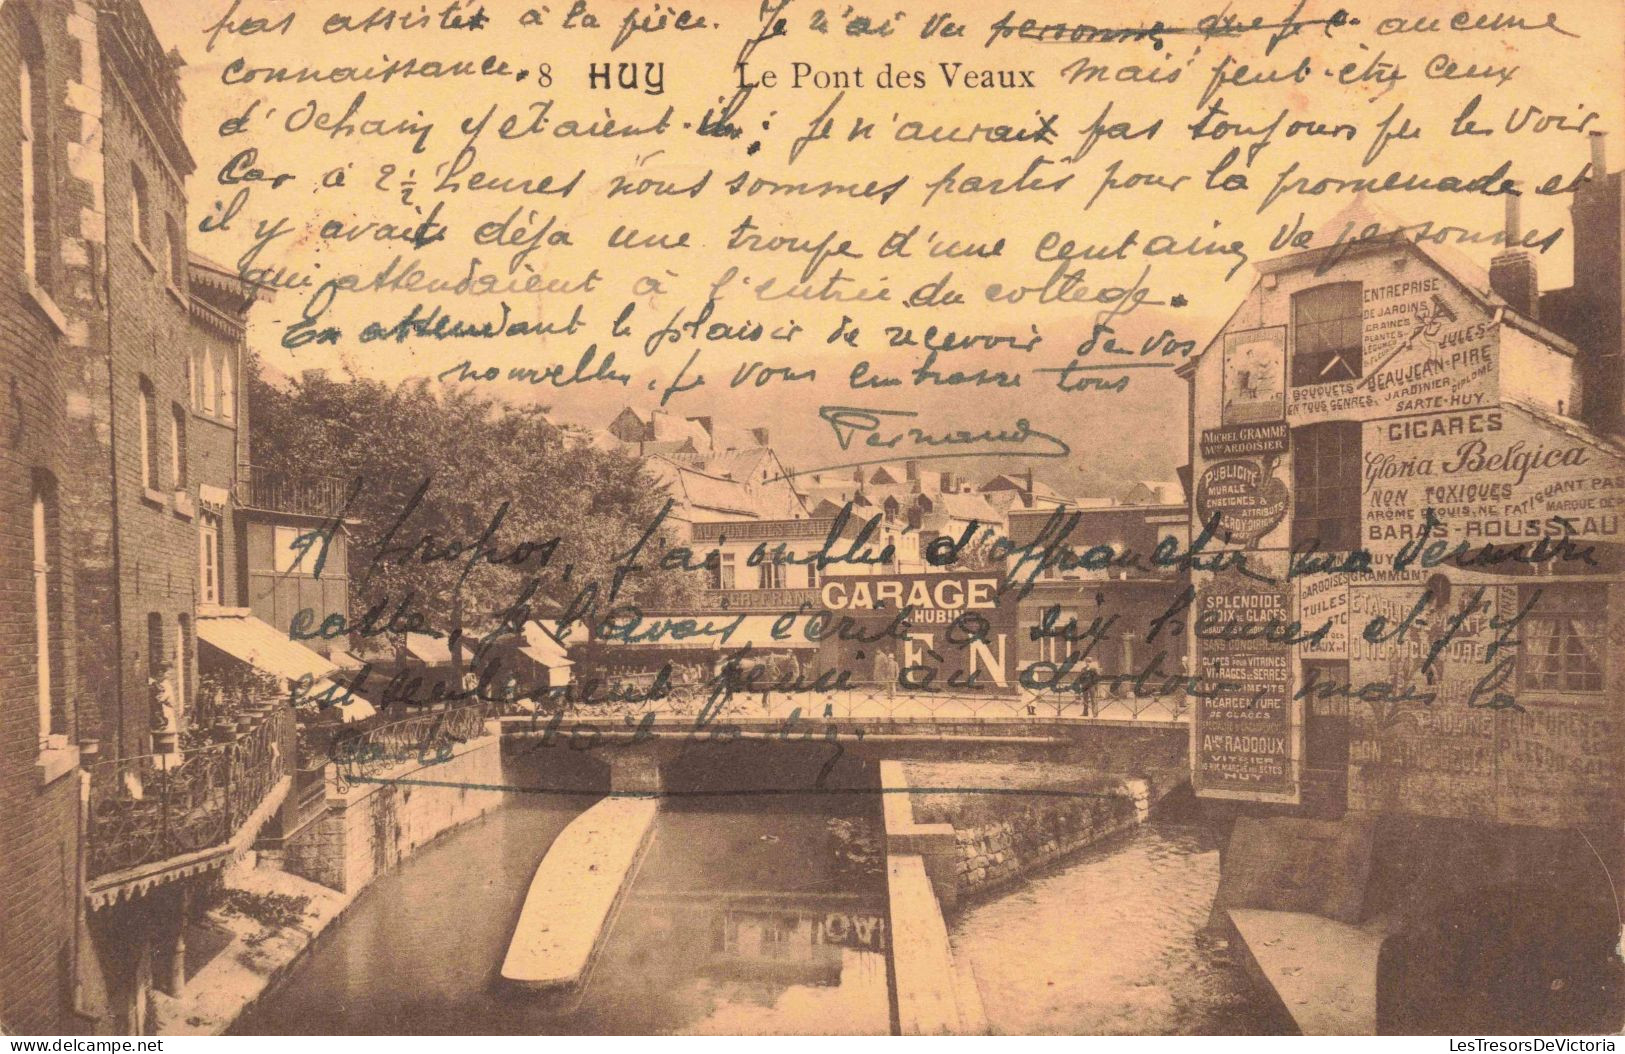 pas assisté à la pièce. Je n'ai vu personne que je c. aucune
connaissance. 8 HUY Le Pont des Veaux Mais peut-être ceux
d'Ochain y étaient-ils ; Je n'aurais pas toujours pu les voir
Car à 2 ½ heures nous sommes partis pour la promenade et
il y avait déjà une troupe d'une centaine de personnes
qui attendaient à l'entrée du collège.
En attendant le plaisir de recevoir de vos
nouvelles, Je vous embrasse tous
Fernand
A propos, j'ai oublié d'affranchir ma dernière
carte, Je l'avais écrite à six heures et j'y
est seulement pensé au dortoir mais la
carte était partie.
ENTREPRISE
DE JARDINS
GRAINES
PLANTES
LÉGUMES
FLEURS
JULES
BEAUJEAN-PIRE
JARDINIER DIPLOMÉ
SARTE-HUY.
BOUQUETS
EN TOUS GENRES
MICHEL GRAMME
Mtre ARDOISIER
PUBLICITÉ
MURALE
ENSEIGNES &
ATTRIBUTS
LEROY-DIRION
CIGARES
Gloria Belgica
NON TOXIQUES
AROME EXQUIS, NE FATIGUANT PAS
MARQUE DÉP
BARAS-ROUSSEAU
HUY
GRAMMONT
ARDOISES
TUILES
VEAUX
SPLENDIDE
CHOIX DE GLACES
SANS CONCURRENCE
GLACES POUR VITRINES
VITRAGES DE SERRES
RÉARGENTURE
DE GLACES
RADOUX
VITRIER
RUE MARCHÉ AUX BÊTES
HUY
GARAGE
HUBIN
F N
LesTresorsDeVictoria